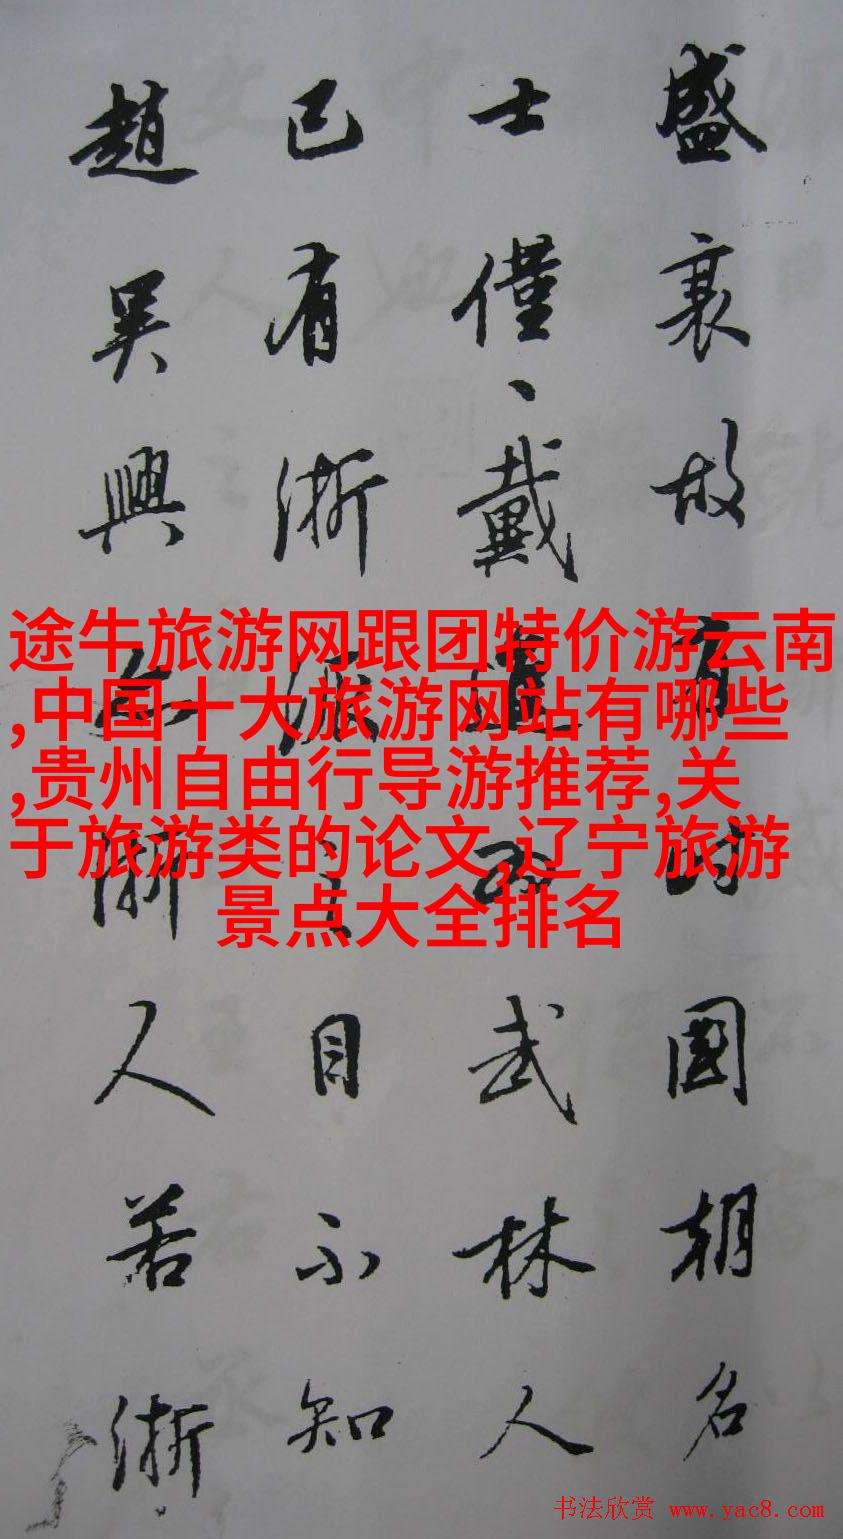 盛衰故有時國朝名
士僅戴進為武林人
已有浙派之目不知
趙吳興亦浙人若浙
途牛旅游网跟团特价游云南
,中国十大旅游网站有哪些
,贵州自由行导游推荐,关
于旅游类的论文,辽宁旅游
景点大全排名
书法欣赏 www.yac8.com